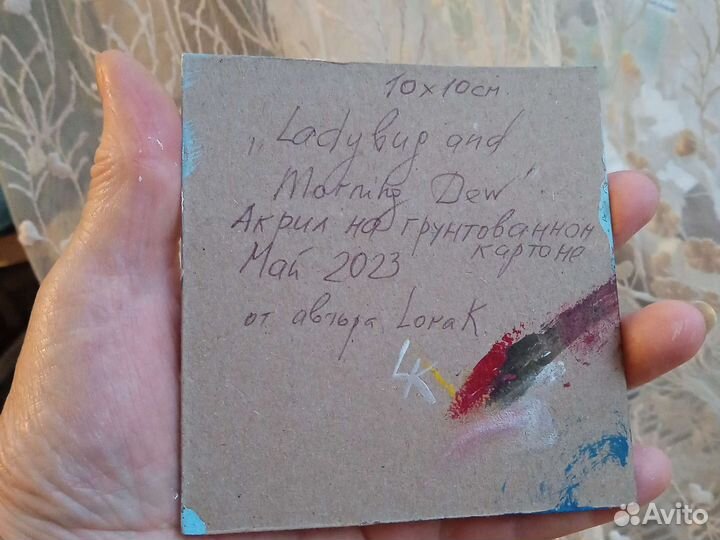 10х10см.
„Ladybug and
Morning Dew"
Акрил на грунтованном
картоне
Май 2023
от автора LoraK.
LK
Avito